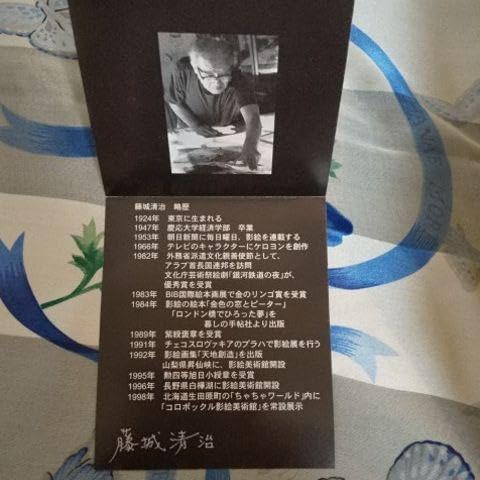 藤城清治　略歴
1924年　東京に生まれる
1947年　慶応大学経済学部　卒業
1953年　朝日新聞に毎日曜日、影絵を連載する
1966年　テレビのキャラクターにケロヨンを創作
1982年　外務省派遣文化親善使節として、
アラブ首長国連邦を訪問
文化庁芸術祭絵劇「銀河鉄道の夜」が、
優秀賞を受賞
1983年　BIB国際絵本画展で金のリンゴ賞を受賞
1984年　影絵の絵本「金色の窓とピーター」
「ロンドン橋でひろった夢」を
暮しの手帖社より出版
1989年　紫綬褒章を受賞
1991年　チェコスロヴァキアのプラハで影絵展を行う
1992年　影絵画集「天地創造」を出版
山梨県昇仙峡に、影絵美術館開設
1995年　勲四等旭日小綬章を受賞
1996年　長野県白樺湖に影絵美術館開設
1998年　北海道生田原町の「ちゃちゃワールド」内に
「コロボックル影絵美術館」を常設展示
藤城清治